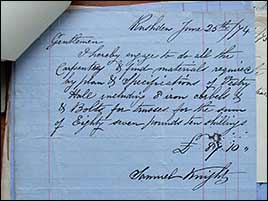 Rushden June 25th /74
Gentlemen
I hereby agree to do all the
Carpenter & find materials required
by plan & Specifications of
Hall including 8 iron
& Bolts for trusses for the sum
of Eighty seven pounds ten shillings
£ 87.10
Samuel Wright